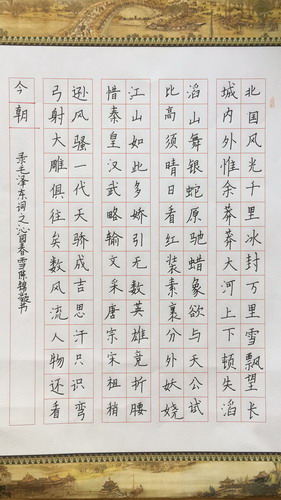 北国风光千里冰封万里雪飘望长
城内外惟余莽莽大河上下顿失滔
滔山舞银蛇原驰蜡象欲与天公试
比高须晴日看红装素裹分外妖娆
江山如此多娇引无数英雄竞折腰
惜秦皇汉武略输文采唐宗宋祖稍
逊风骚一代天骄成吉思汗只识弯
弓射大雕俱往矣数风流人物还看
今朝
录毛泽东词之沁园春雪陈锦书